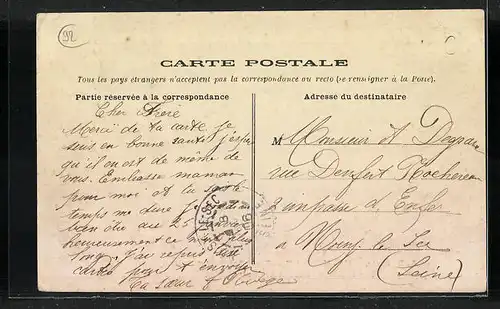 92
CARTE POSTALE
Tous les pays étrangers n'acceptent pas la correspondance au recto (se renseigner à la Poste).
Partie réservée à la correspondance
Adresse du destinataire
Cher Frère
Merci de ta carte je
suis en bonne santé j'espère
qu'il en est de même de
vous. Embrasse maman
pour moi et la
temps me dure
bien du 25
heureusement ce plus
j'ai reçu
cartes pour t'envoyer
Ta sœur
M Monsieur A
rue Denfert Rochereau
2 impasse d'Enfer
à Noisy le Sec
(Seine)